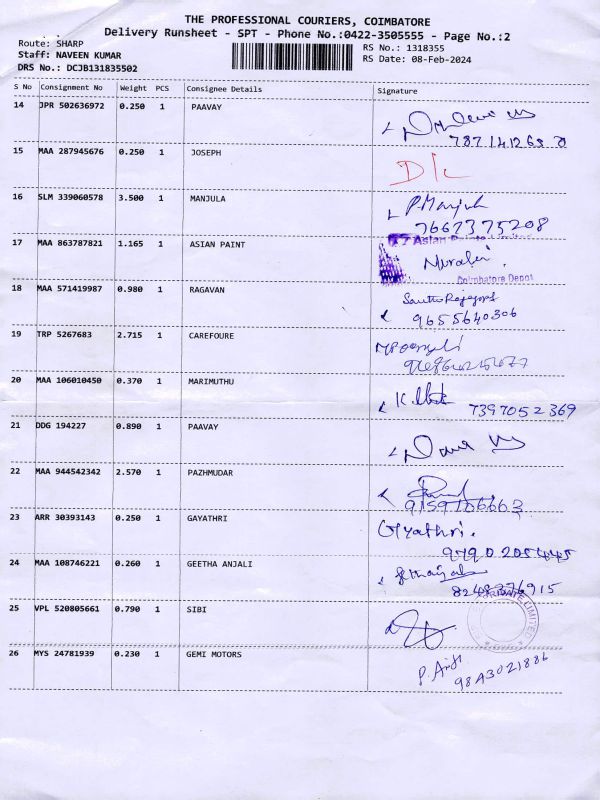 THE PROFESSIONAL COURIERS, COIMBATORE
Delivery Runsheet - SPT - Phone No.:0422-3505555 - Page No.:2
Route: SHARP
Staff: NAVEEN KUMAR
DRS No.: DCJB131835502
RS No.: 1318355
RS Date: 08-Feb-2024
S No Consignment No Weight PCS Consignee Details Signature
14 JPR 502636972 0.250 1 PAAVAY
15 MAA 287945676 0.250 1 JOSEPH
D/L
16 SLM 339060578 3.500 1 MANJULA P.Manjula
7667375208
17 MAA 863787821 1.165 1 ASIAN PAINT Asian Paints Limited
Murali
Coimbatore Depot
18 MAA 571419987 0.980 1 RAGAVAN
9655640306
19 TRP 5267683 2.715 1 CAREFOURE
20 MAA 106010450 0.370 1 MARIMUTHU
7397052369
21 DDG 194227 0.890 1 PAAVAY
22 MAA 944542342 2.570 1 PAZHMUDAR
9159106663
23 ARR 30393143 0.250 1 GAYATHRI Gyathri.
24 MAA 108746221 0.260 1 GEETHA ANJALI
8248376915
25 VPL 520805661 0.790 1 SIBI PRIVATE LIMITED
26 MYS 24781939 0.230 1 GEMI MOTORS
9843021886